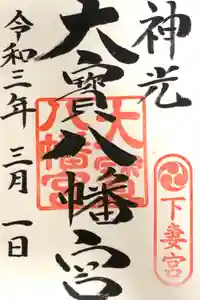 神光
大寳八幡宮
大寳八幡宮
下妻宮
令和三年 三月 一日